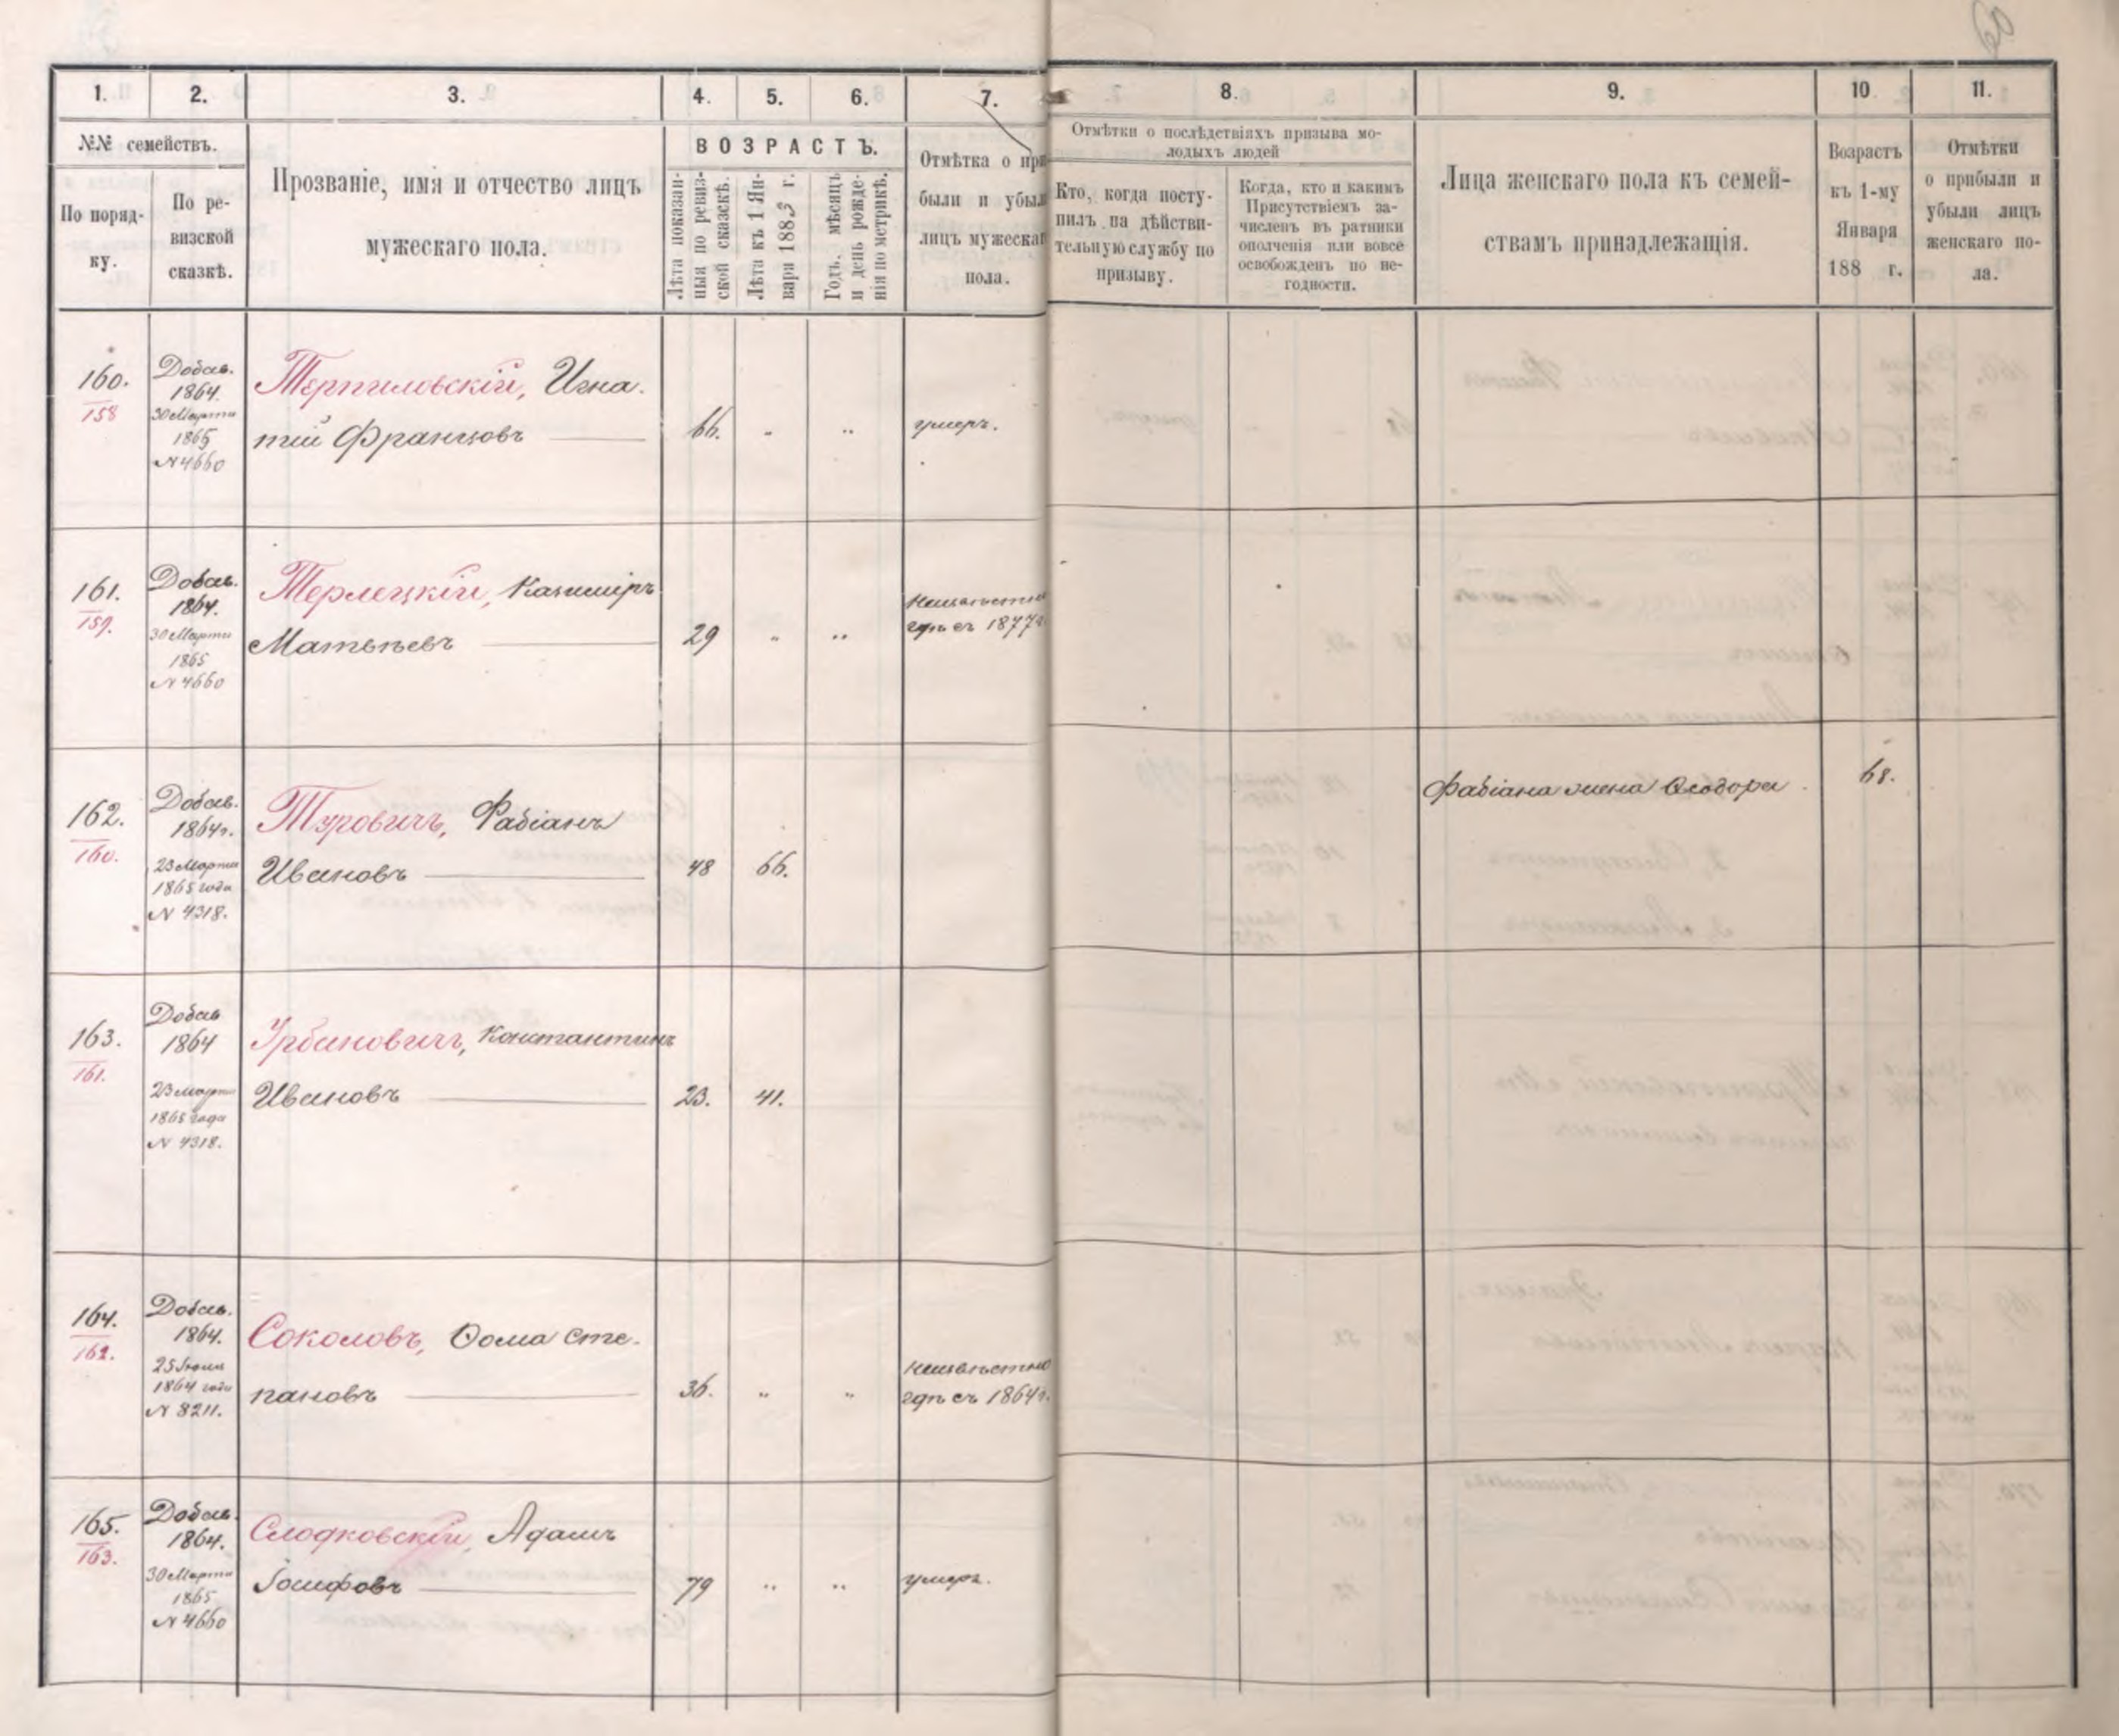 60
1. 2. 3. 4. 5. 6. 7. 8. 9. 10 11.
№№ семействъ.
По поряд-
ку.
По ре-
визской
сказкѣ.
Прозваніе, имя и отчество лицъ
мужескаго пола.
ВОЗРАСТЪ.
Лѣта показан-
ныя по ревиз-
ской сказкѣ.
Лѣта къ 1 Ян-
варя 1883 г.
Годъ, мѣсяцъ
и день рожде-
нія по метрикѣ.
Отмѣтка о при
были и убыл
лицъ мужескаг
пола.
Отмѣтки о послѣдствіяхъ призыва мо-
лодыхъ людей
Кто, когда посту-
пилъ на дѣйстви-
тельную службу по
призыву.
Когда, кто и какимъ
Присутствіемъ за-
численъ въ ратники
ополченія или вовсе
освобожденъ по не-
годности.
Лица женскаго пола къ семей-
ствамъ принадлежащія.
Возрастъ
къ 1-му
Января
188 г.
Отмѣтки
о прибыли и
убыли лицъ
женскаго по-
ла.
160.
158
Добав.
1864.
30 Марта
1865
N 4660
Терпиловскій, Игна-
тій Францовъ
66. " "
умеръ.
161.
159.
Добав.
1864.
30 Марта
1865
N 4660
Терлецкій, Казиміръ
Матвѣевъ
29 " "
Неизвѣстно
гдѣ съ 1877г.
162.
160.
Добав.
1864г.
23 Марта
1865 года
N 4318.
Туровичъ, Фабіанъ
Ивановъ
48 66.
Фабіана жена Ѳеодора
68.
163.
161.
Добав
1864
23 Марта
1865 года
N 4318.
Урбановичъ, Константинъ
Ивановъ
23. 41.
164.
162.
Добав.
1864.
25 Іюня
1864 года
N 8211.
Соколовъ, Ѳома Сте-
пановъ
36. " "
Неизвѣстно
гдѣ съ 1864г.
165.
163.
Добав.
1864.
30 Марта
1865
N 4660
Слодковскій, Адамъ
Іосифовъ
79 " "
умеръ.